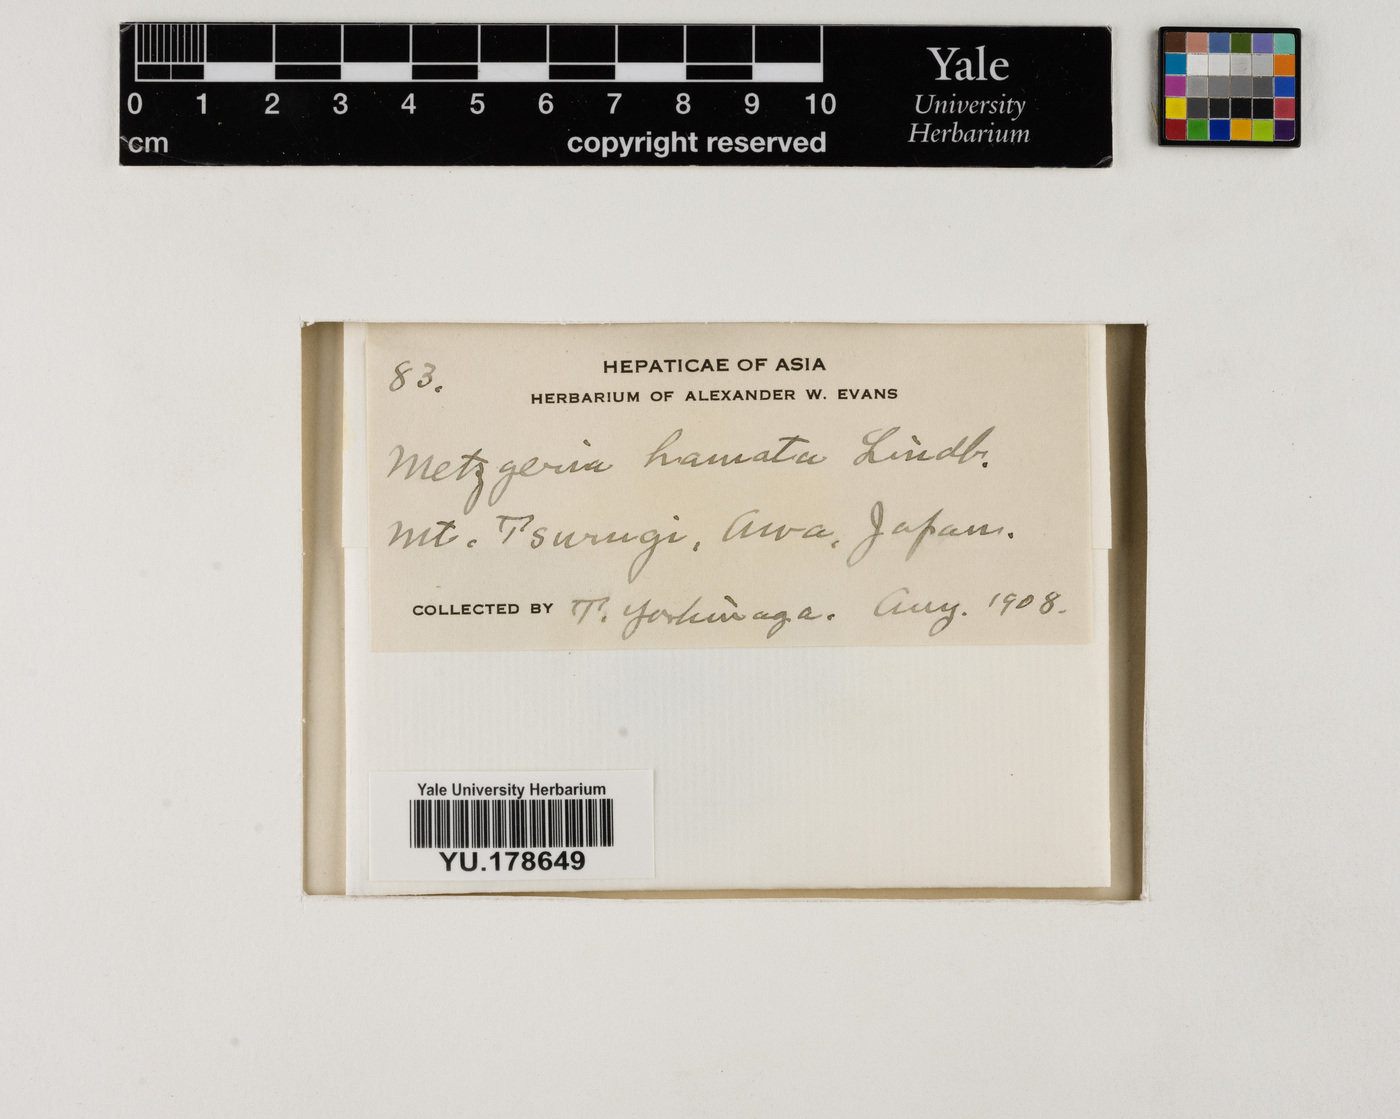 0 1 2 3 4 5 6 7 8 9 10
cm
copyright reserved
Yale
University
Herbarium
83.
HEPATICAE OF ASIA
HERBARIUM OF ALEXANDER W. EVANS
Metzgeria hamata Lindb.
Mt. Tsurugi, Awa, Japan.
COLLECTED BY T. Yoshinaga. Aug. 1908.
Yale University Herbarium
YU.178649